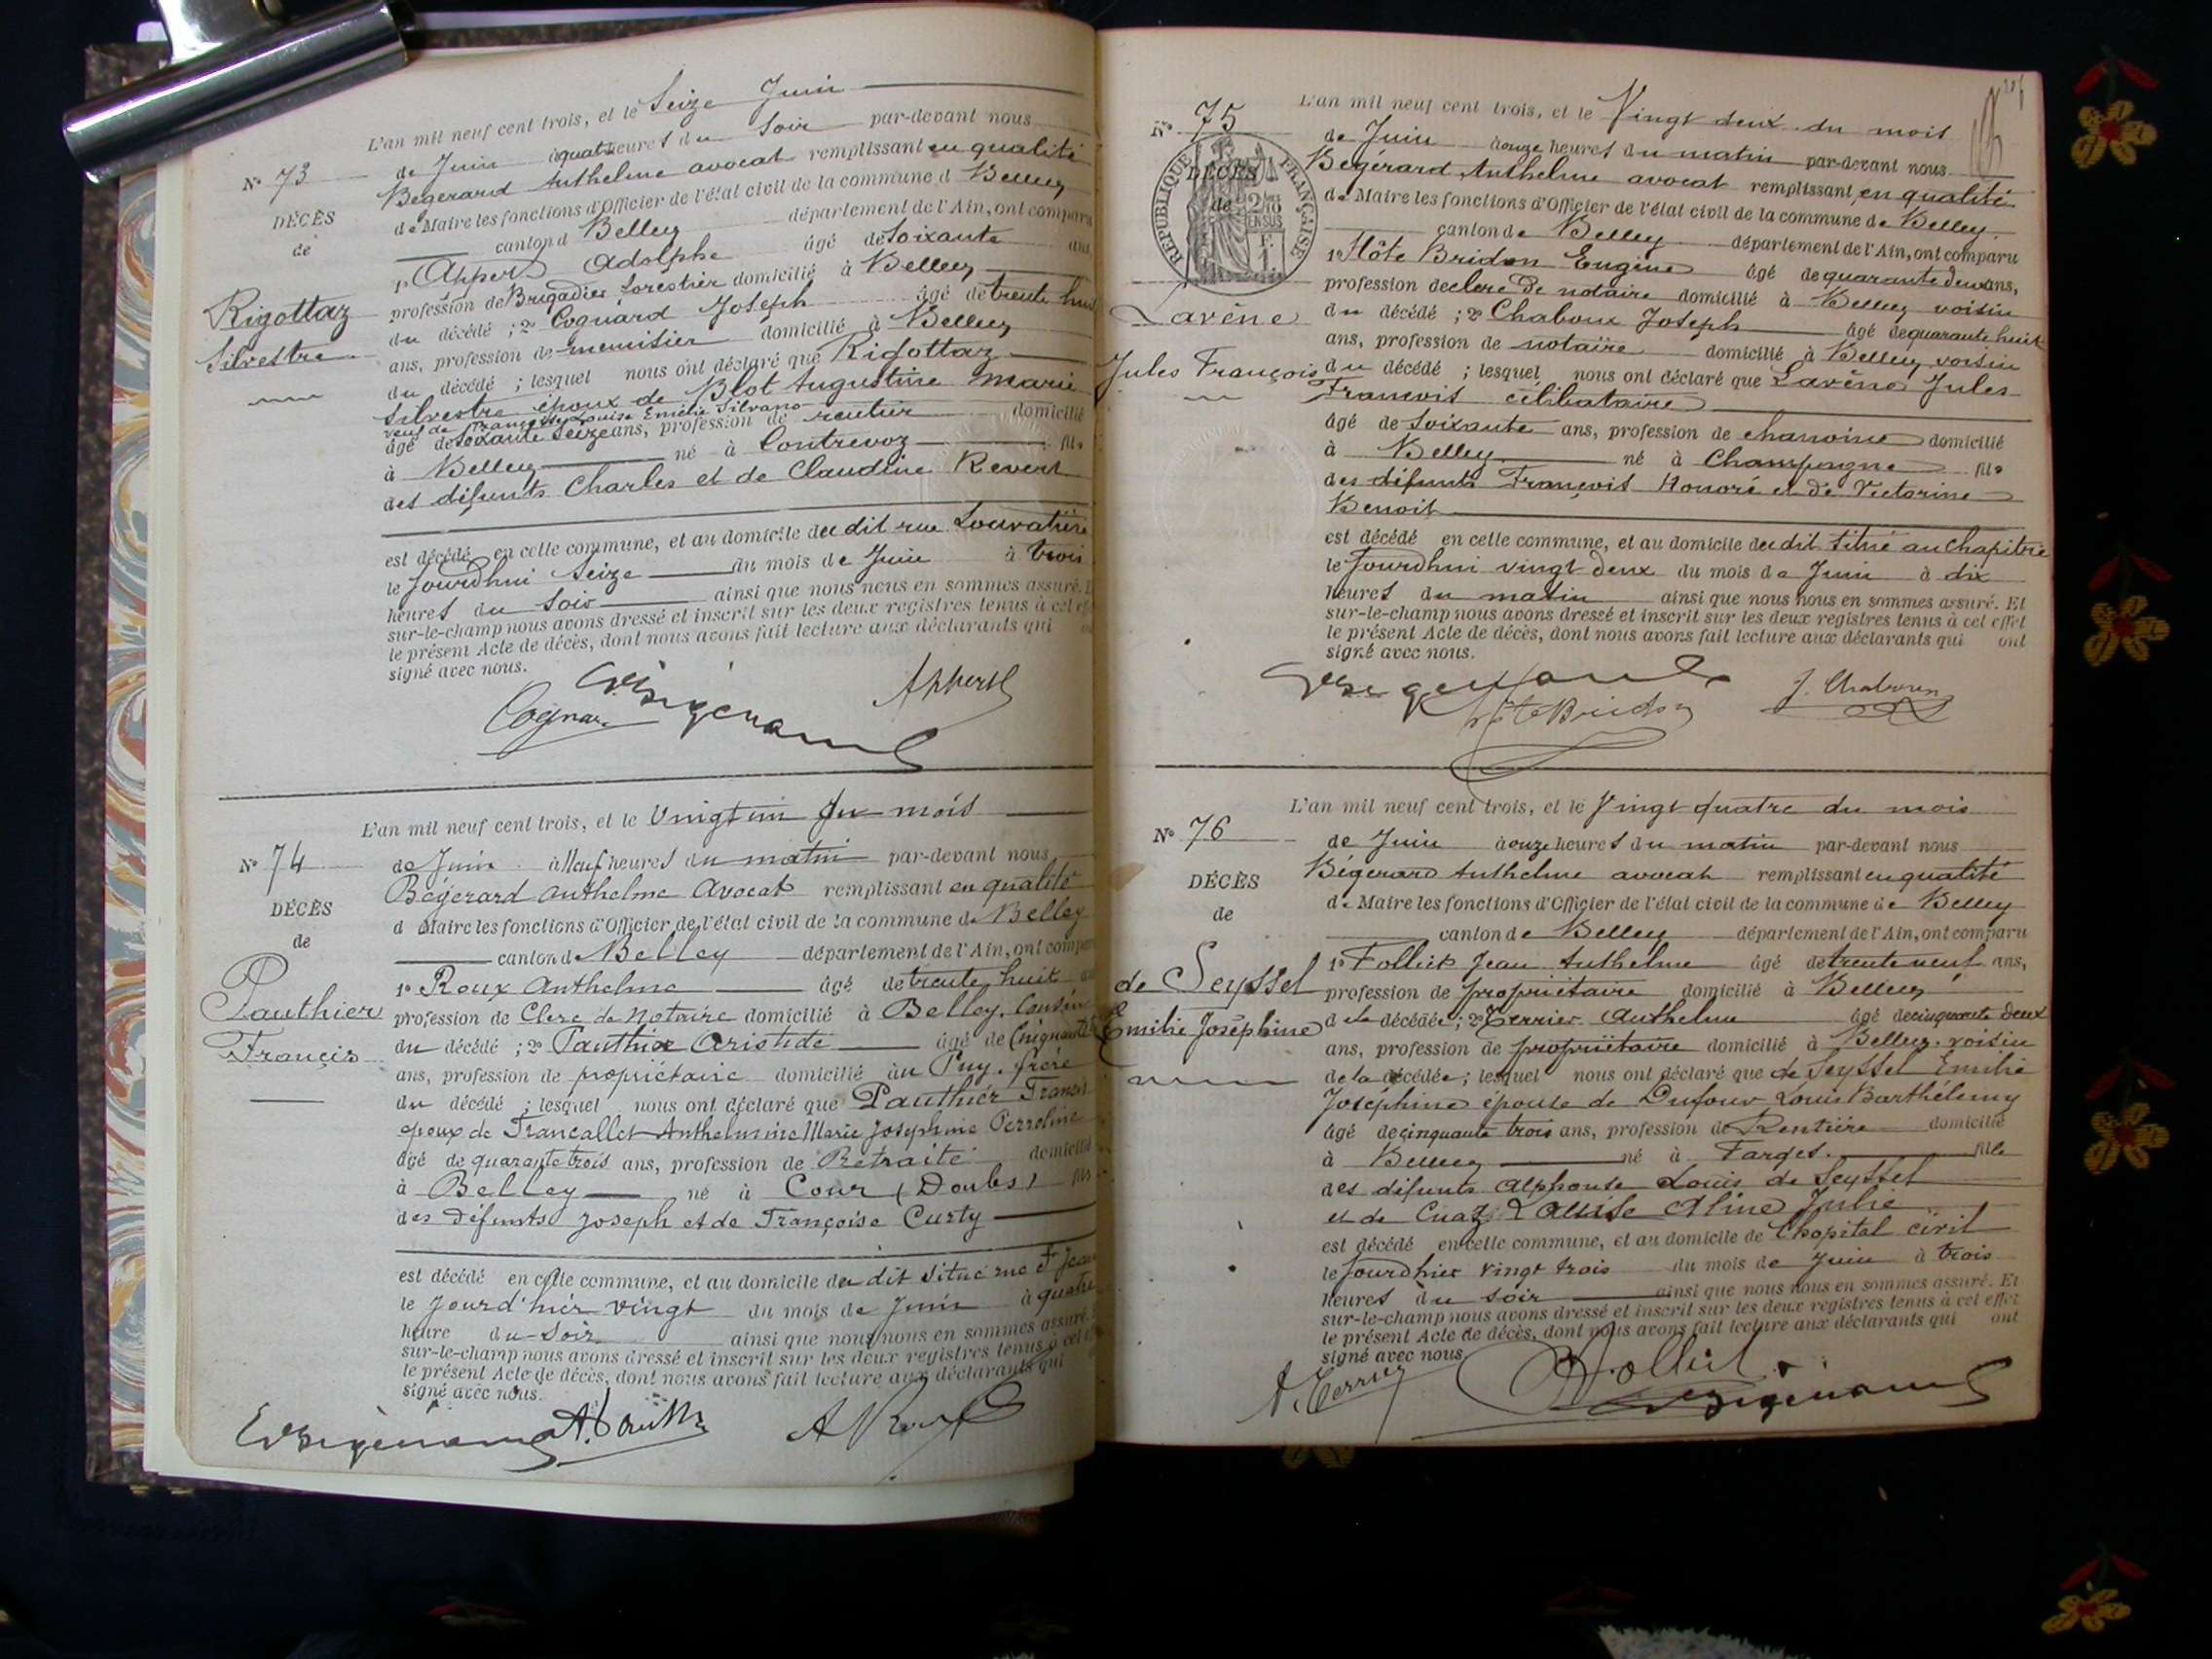 L'an mil neuf cent trois, et le Seize Juin
N° 73
de Juin à quatre heures du soir par-devant nous
Bégerard Anthelme avocat remplissant en qualité
DÉCÈS
de Maire les fonctions d'Officier de l'état civil de la commune d Belley
de
canton d Belley département de l'Ain, ont comparu
1° Appert Adolphe âgé de Soixante ans
profession de Brigadier forestier domicilié à Belley
Rigottaz
du décédé ; 2° Cognard Joseph âgé de trente huit
Silvestre
ans, profession de menuisier domicilié à Belley
du décédé ; lesquel nous ont déclaré que Rigottaz
Silvestre époux de Blot Augustine Marie
veuf de Françoise Louise Emélie Silvano
âgé de Soixante Seize ans, profession de rentier domicilié
à Belley né à Contrevoz fils
des défunts Charles et de Claudine Revert
est décédé en cette commune, et au domicile du dit rue
le Jourdhui Seize du mois de Juin à trois
heures du Soir ainsi que nous nous en sommes assuré.
sur-le-champ nous avons dressé et inscrit sur les deux registres tenus à cet
le présent Acte de décès, dont nous avons fait lecture aux déclarants qui
signé avec nous.
Appert
L'an mil neuf cent trois, et le Vingt un du mois
N° 74
de Juin à Neuf heures du matin par-devant nous
Bégerard Anthelme Avocat remplissant en qualité
DÉCÈS
d Maire les fonctions d'Officier de l'état civil de la commune de Belley
de
canton d Belley département de l'Ain, ont comparu
1° Roux Anthelme âgé de trente huit
Pauthier
profession de Clerc de Notaire domicilié à Belley, Cousin
Francis
du décédé ; 2° Pauthier Aristide âgé de Cinquante
ans, profession de propriétaire domicilié au Puy, frère
du décédé ; lesquel nous ont déclaré que Pauthier Francis
époux de Trancallet Anthelmine Marie Joséphine Perroline
âgé de quarante trois ans, profession de Retraité domicilié
à Belley né à Cour (Doubs) fils
des Défunts Joseph et de Françoise Curty
est décédé en cette commune, et au domicile du dit situé rue St Jean
le Jourd'hier vingt du mois de Juin à quatre
heure du Soir ainsi que nous nous en sommes assuré.
sur-le-champ nous avons dressé et inscrit sur les deux registres tenus à cet
le présent Acte de décès, dont nous avons fait lecture aux déclarants qui
signé avec nous.
L'an mil neuf cent trois, et le Vingt deux du mois
N° 75
de Juin à onze heures du matin par-devant nous
RÉPUBLIQUE FRANÇAISE
DÉCÈS
de
Bégérard Anthelme avocat remplissant en qualité
de Maire les fonctions d'Officier de l'état civil de la commune de Belley
canton de Belley département de l'Ain, ont comparu
1° Hôte Bridon Eugène âgé de quarante deux ans,
profession de clerc de notaire domicilié à Belley voisin
Lavêne
du décédé ; 2° Chaboux Joseph âgé de quarante huit
ans, profession de notaire domicilié à Belley voisin
Jules François
du décédé ; lesquel nous ont déclaré que Lavêne Jules
Francois célibataire
âgé de soixante ans, profession de chanoine domicilié
à Belley né à Champagne fils
des défunts François Honoré et de Victorine
Benoit
est décédé en cette commune, et au domicile du dit situé au Chapitre
le Jourdhui vingt deux du mois de Juin à dix
heures du matin ainsi que nous nous en sommes assuré. Et
sur-le-champ nous avons dressé et inscrit sur les deux registres tenus à cet effet
le présent Acte de décès, dont nous avons fait lecture aux déclarants qui ont
signé avec nous.
Hôte Bridon
J. Chaboux
L'an mil neuf cent trois, et le Vingt quatre du mois
N° 76
de Juin à onze heures du matin par-devant nous
Bégerard Anthelme avocat remplissant en qualité
DÉCÈS
de Maire les fonctions d'Officier de l'état civil de la commune de Belley
de
canton de Belley département de l'Ain, ont comparu
1° Folliet Jean Anthelme âgé de trente neuf ans,
de Seyssel
profession de propriétaire domicilié à Belley
Emilie Joséphine
de la décédée ; 2° Terrier Anthelme âgé de cinquante deux
ans, profession de propriétaire domicilié à Belley, voisin
de la décédée ; lesquel nous ont déclaré que de Seyssel Emilie
Joséphine épouse de Dufour Louis Barthélemy
âgé de cinquante trois ans, profession de Rentière domicilié
à Belley né à Farges. fille
des défunts Alphonse Louis de Seyssel
et de Cuaz Louise Aline Julie
est décédé en cette commune, et au domicile de l'hopital civil
le Jourdhier vingt trois du mois de Juin à trois
heures du soir ainsi que nous nous en sommes assuré. Et
sur-le-champ nous avons dressé et inscrit sur les deux registres tenus à cet effet
le présent Acte de décès, dont nous avons fait lecture aux déclarants qui ont
signé avec nous.
A. Terrier
Folliet